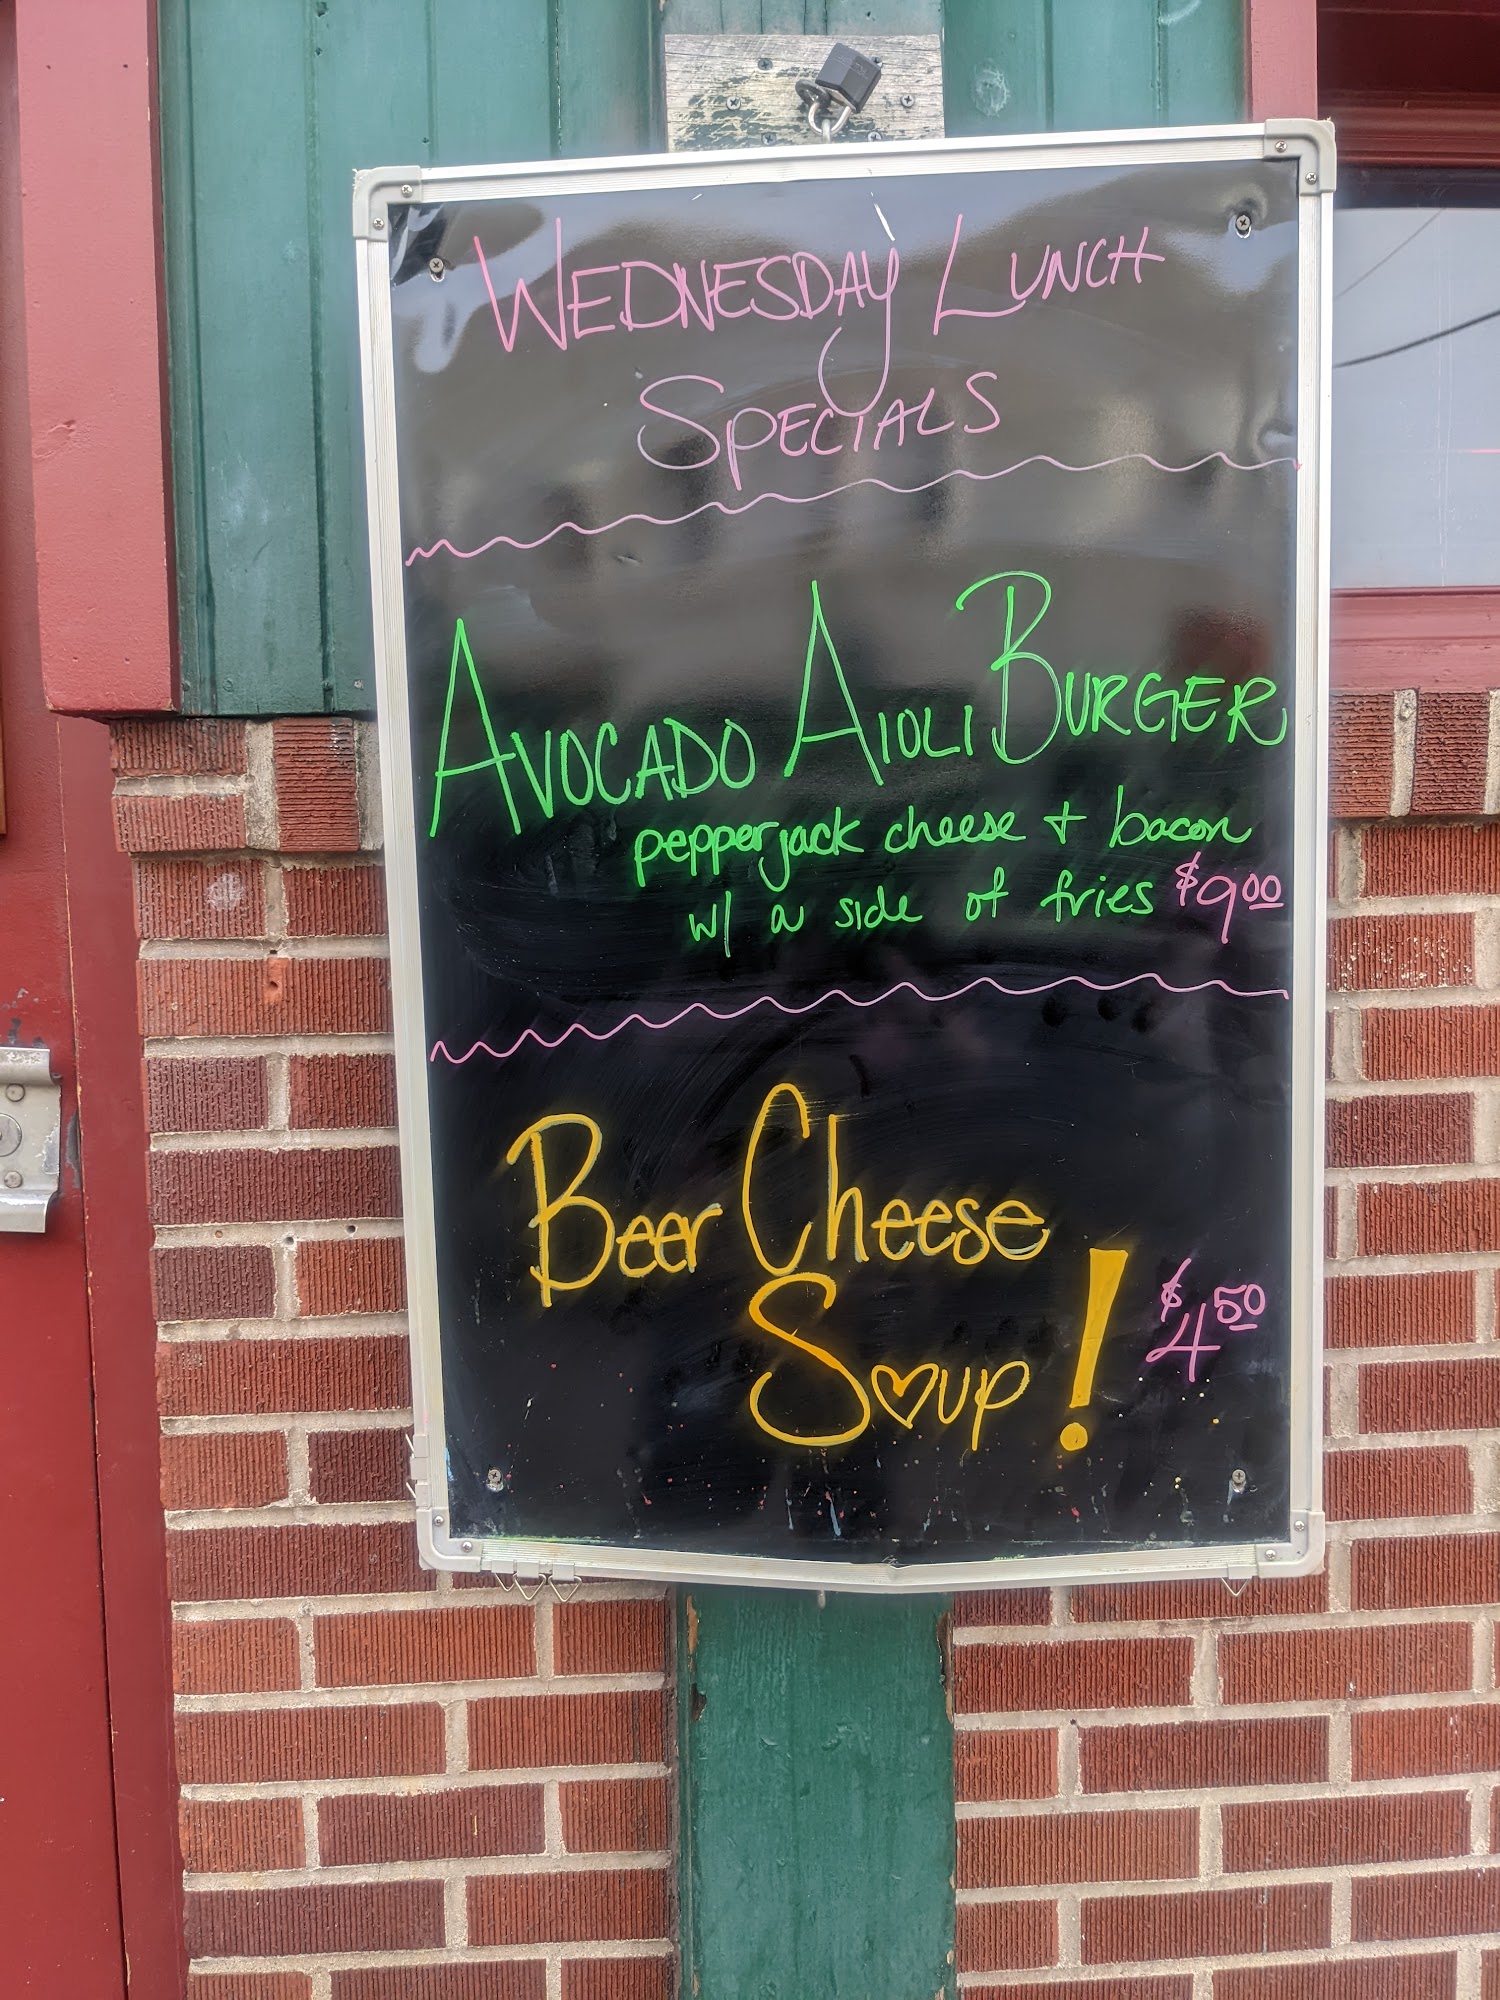 WEDNESDAY LUNCH
SPECIALS
AVOCADO AIOLI BURGER
pepperjack cheese + bacon
w/ a side of fries $9.00
Beer Cheese
S♡up! $4.50